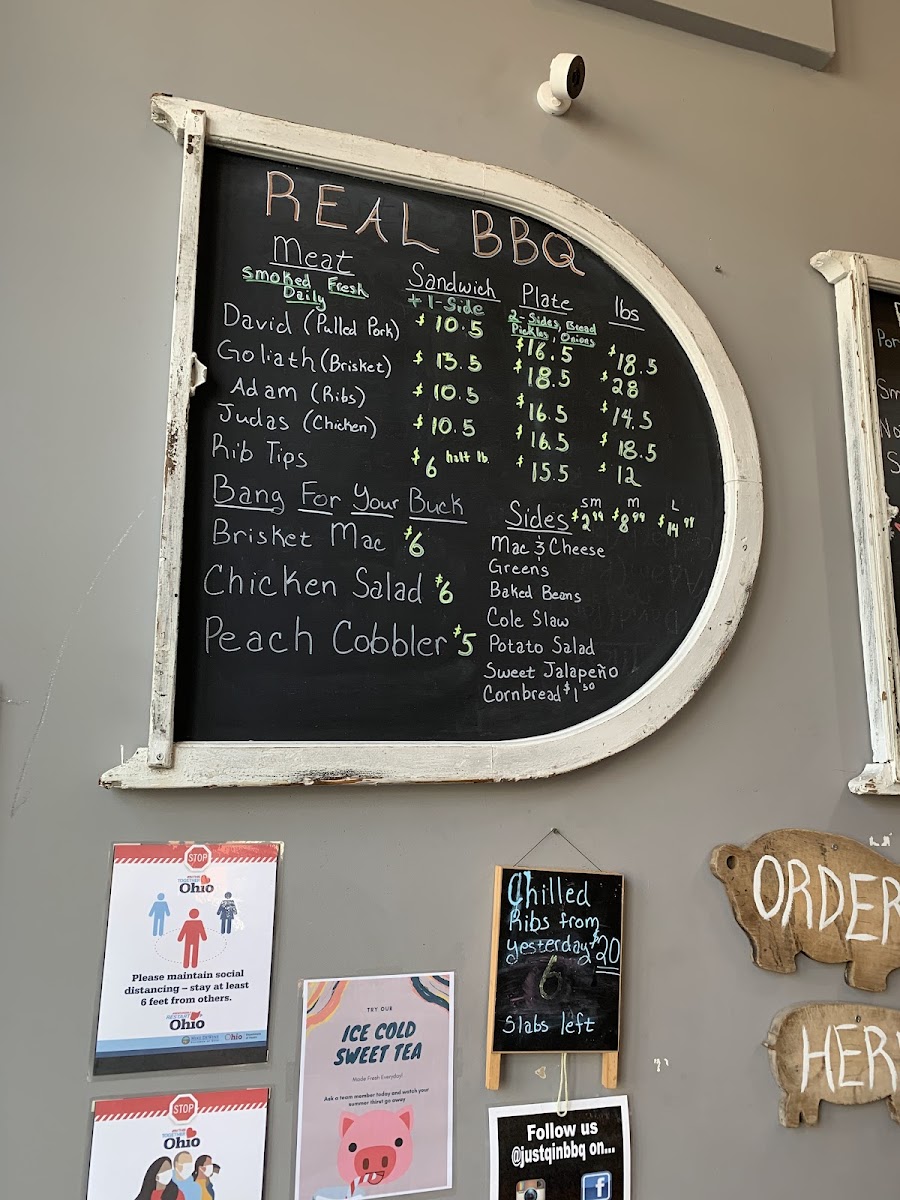 REAL BBQ
Meat
Smoked Fresh
Daily
Sandwich
+ 1-Side
Plate
2-Sides, Bread
Pickles, Onions
lbs
David (Pulled Pork) $10.5 $16.5 $18.5
Goliath (Brisket) $13.5 $18.5 $28
Adam (Ribs) $10.5 $16.5 $14.5
Judas (Chicken) $10.5 $16.5 $18.5
Rib Tips $6 half lb. $15.5 $12
Bang For Your Buck
Brisket Mac $6
Chicken Salad $6
Peach Cobbler $5
sm m L
Sides $2.99 $8.99 $14.99
Mac & Cheese
Greens
Baked Beans
Cole Slaw
Potato Salad
Sweet Jalapeño
Cornbread $1.50
STOP
TOGETHER
Ohio
Please maintain social
distancing – stay at least
6 feet from others.
RESTART
Ohio
Ohio
STOP
TOGETHER
Ohio
TRY OUR
ICE COLD
SWEET TEA
Made Fresh Everyday!
Ask a team member today and watch your
summer thirst go away
Chilled
Ribs from
yesterday $20
6
Slabs left
Follow us
@justqinbbq on...
f
ORDER
HER